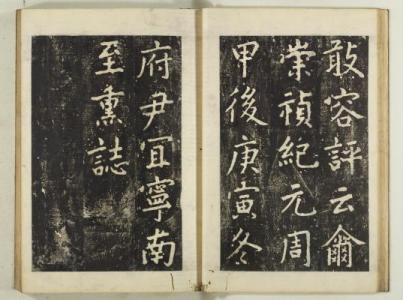 敢容評云爾
崇禎紀元周
甲後庚寅冬
府尹宜寧南
至熏誌